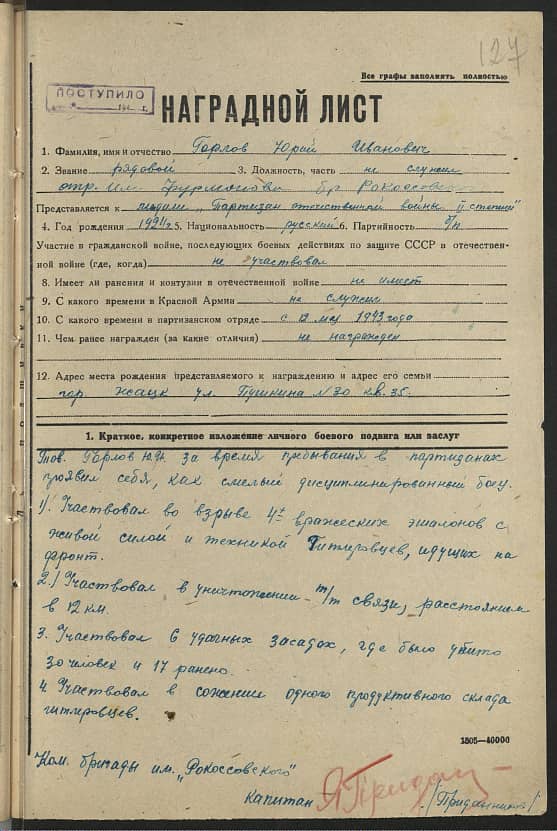 127
Все графы заполнять полностью
ПОСТУПИЛО
194 г.
НАГРАДНОЙ ЛИСТ
1. Фамилия, имя и отчество Горлов Юрий Иванович
2. Звание рядовой 3. Должность, часть не служил
отр. им Фурманова бр Рокоссовского
Представляется к медали „Партизан отечественной войны II степени"
4. Год рождения 5. Национальность русский 6. Партийность б/п
Участие в гражданской войне, последующих боевых действиях по защите СССР в отечествен-
ной войне (где, когда) не участвовал
8. Имеет ли ранения и контузии в отечественной войне не имеет
9. С какого времени в Красной Армии не служил
10. С какого времени в партизанском отряде с 12 мая 1943 года
11. Чем ранее награжден (за какие отличия) не награжден
12. Адрес места рождения представляемого к награждению и адрес его семьи
гор. ул. Пушкина № 30 кв. 35.
1. Краткое, конкретное изложение личного боевого подвига или заслуг
Тов. Горлов за время пребывания в партизанах
проявил себя, как смелый дисциплинированный боец.
1). Участвовал во взрыве 4х вражеских эшалонов с
живой силой и техникой Гитлеровцев, идущих на
фронт.
2.) Участвовал в уничтожении т/т связи, расстоянием
в 12 км.
3. Участвовал 6 удачных засадах, где было убито
30 человек и 17 ранено.
4. Участвовал в сожжении одного продуктивного склада
гитлеровцев.
1505—40000
Ком. бригады им. „Рокоссовского"
капитан /Приданников/